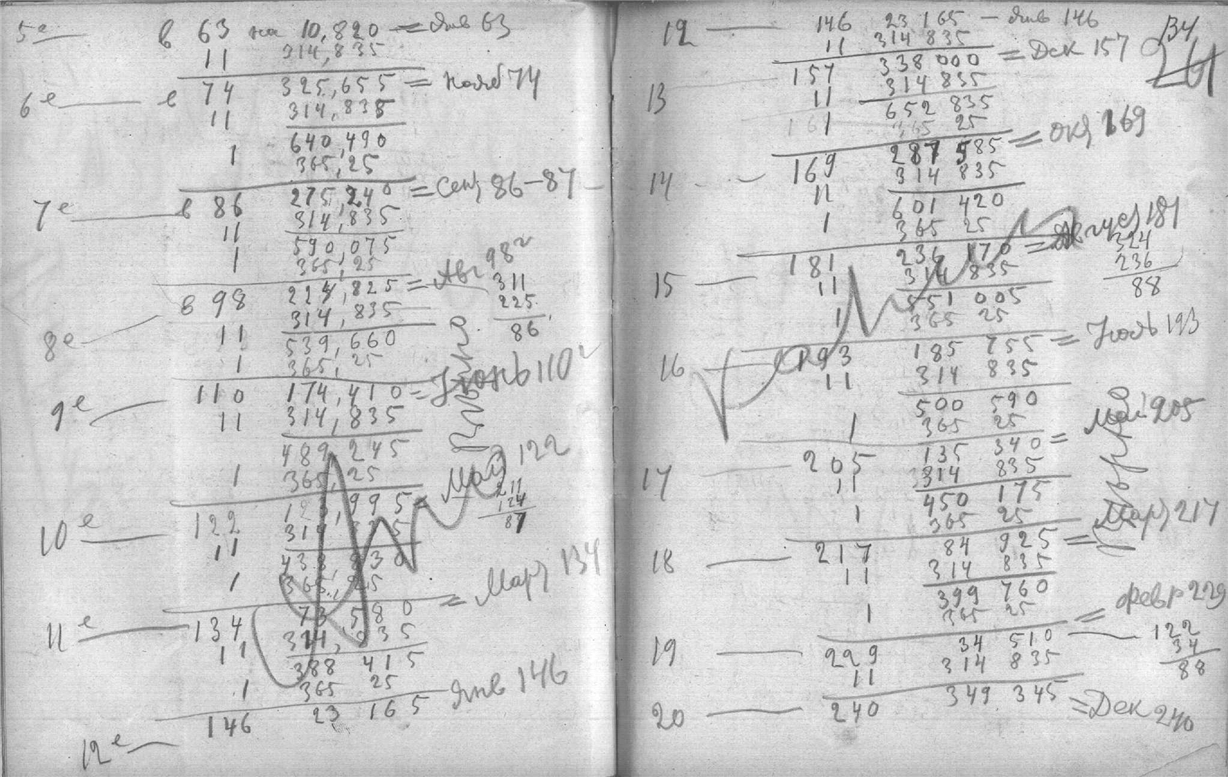 5е — в 63 на 10,820 = Янв 63
11 314,835
6е — в 74 325,655 = Нояб 74
11 314,835
640,490
1 365,25
7е — в 86 275,240 = Сент 86–87
11 314,835
590,075
1 365,25
8е — в 98 224,825 = Авг 98
311
11 314,835
225
539,660
86
1 365,25
9е — 110 174,410 = Июнь 110
11 314,835
489,245
1 365,25
10е — 122 123,995 Май 122
211
11 314,835
124
87
438,830
1 365,25
11е — 134 73 580 = Март 134
11 314,835
388 415
1 365 25
12е — 146 23 165 Янв 146
134
261
12 — 146 23 165 — Янв 146
11 314 835
13 157 338 000 = Дек 157
11 314 835
652 835
161 365 25
14 — 169 287 585 = окт 169
11 314 835
601 420
1 365 25
15 — 181 236 170 = Август 181
324
11 314 835
236
88
551 005
1 365 25
16 — 193 185 755 = Июль 193
11 314 835
500 590
1 365 25
17 — 205 135 340 = Май 205
11 314 835
450 175
1 365 25
18 — 217 84 925 = Март 217
11 314 835
399 760
1 365 25
19 — 229 34 510 = февр 229
122
34
88
11 314 835
20 — 240 349.345 = Дек 240